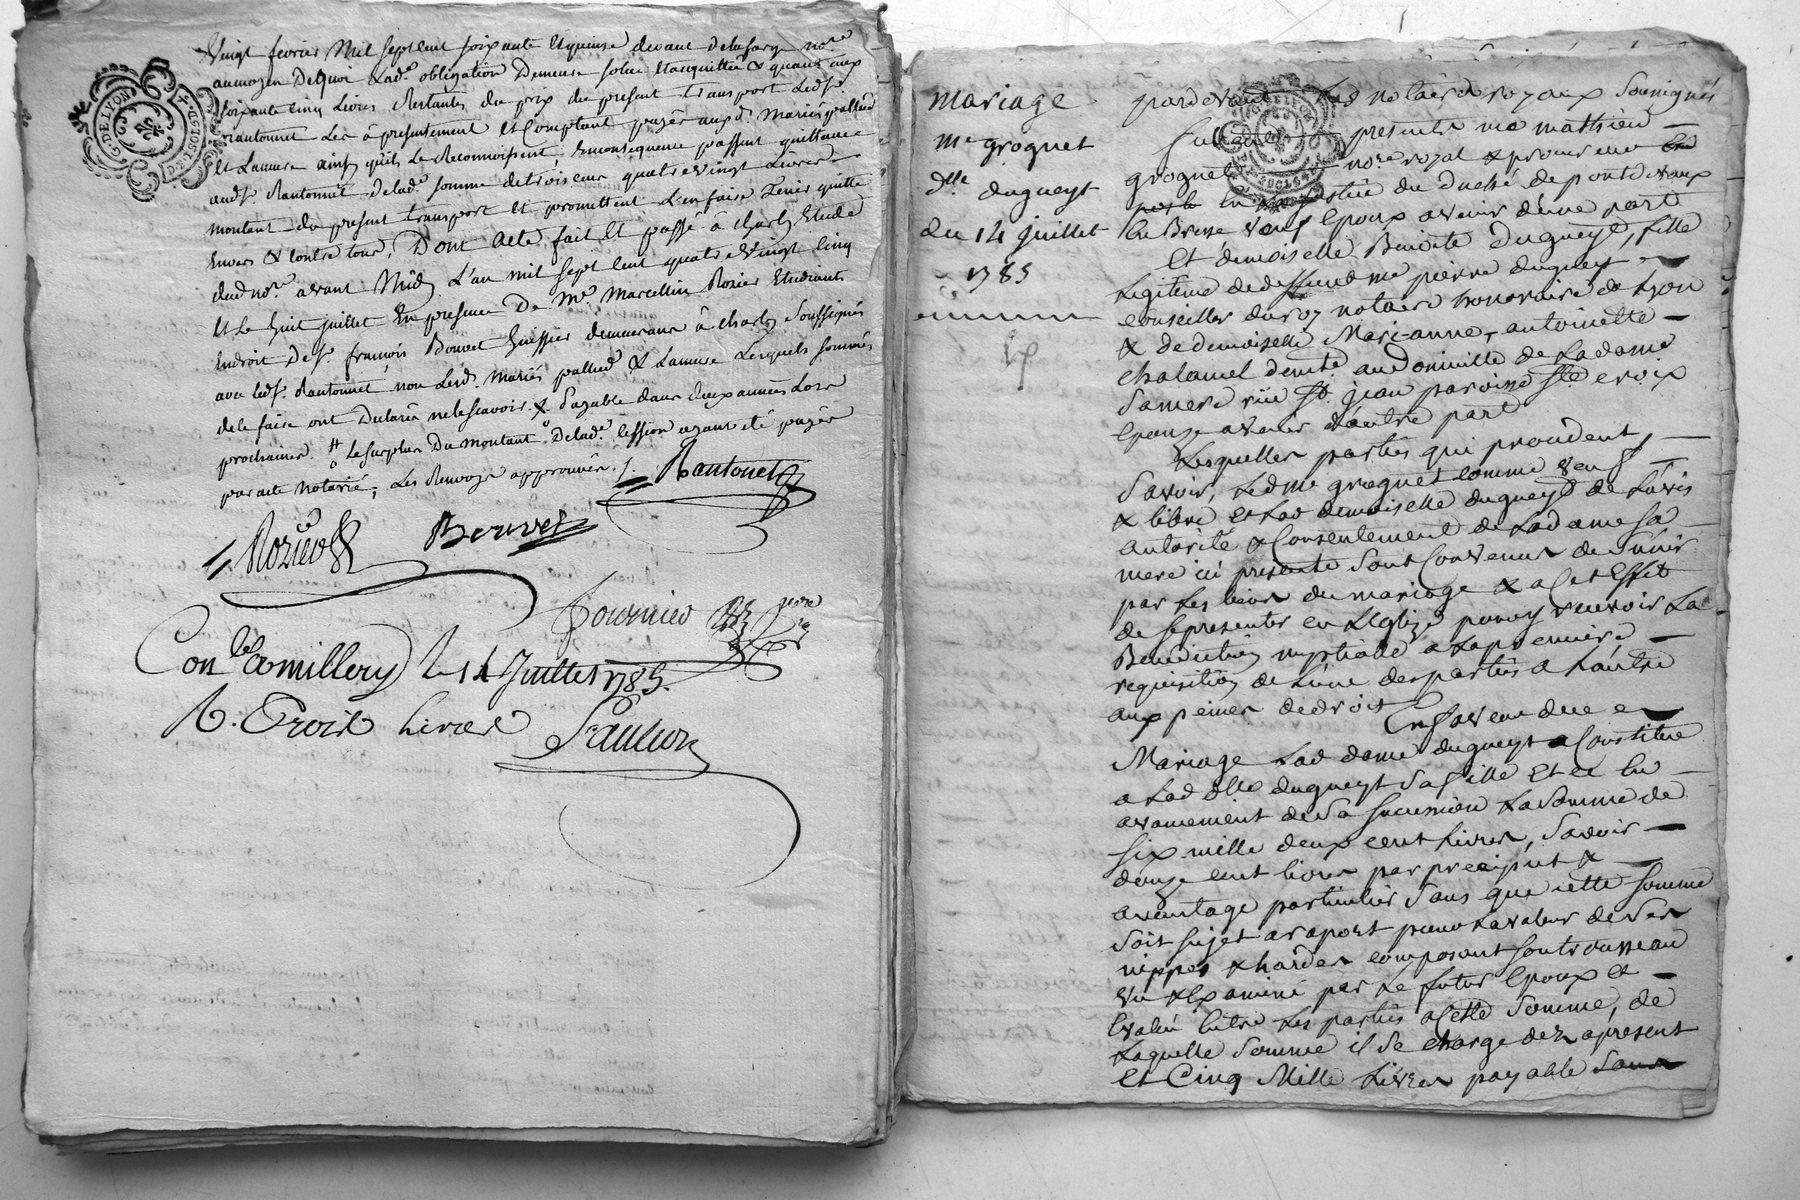 G. DE LYON
vingt fevrier Mil sept cent soixante et quinze devant delafarge no.re
au moyen De quoi Lad.e obligation Demeure solue et acquittée & quant aux
soixante cinq Livres Restantes du prix du present transport Led.
Rantonnet Les a présentement et Comptant payés auxd. Mariés pallied
et Lamure ainsy qu'ils Le Reconnoissent, en consequence passent quittance
aud. Rantonnet de lad.e somme de trois cent quatre vingt Livres
montant du present transport et promettent L'en faire tenir quitte
envers & contre tous, Dont Acte fait et passé à Charly Etude
dud no.re avant Midy L'an mil sept cent quatre vingt cinq
et Le huit juillet En presence De M.e Marcellin Rozier Etudiant
en droit De s. francois Bouvet huissier demeurant à Charly soussignés
avec led. Rantonnet, non Lesd. Mariés pallied & Lamure Lesquels sommés
de le faire ont Declarés ne le scavoir. payable dans deux années Lors
prochaines. Le surplus Du montant De lad.e cession ayant été payés
par acte notarié, Les Renvoys approuvés.
Rantonet
Rozier
Bouvet
fournier
Con.lé a millery le 14 Juillet 1785.
R. Trois livres
Saulion
mariage
me grognet
dlle dugueyt
du 14 juillet
1785
G. DE LYON
pardevant Les notaires royaux soussignés
furent presents me mathieu
grognet no.re royal & procureur
en la justice du duché de pontdevaux
en Bresse veuf epoux avenir d'une part
Et demoiselle Benoite Dugueyt, fille
Legitime de deffunt me pierre dugueyt
conseiller du roy notaire honoraire de Lyon
& de demoiselle Marianne-antoinette
chalamel demte. au domicille de La dame
sa mere rue St. jean paroisse Ste croix
epouze avenir d'autre part
Lesquelles parties qui procedent,
savoir, Led me grognet comme veuf
& libre et Lad demoiselle dugueyt de L'avis
autorité & Consentement de La dame sa
mere ici presente sont Convenus de s'unir
par Les liens du mariage & a cet Effet
de se presenter en L'eglize pour y recevoir La
Benediction nuptialle a La premiere
requisition de L'une des parties a L'autre
aux peines de droit En faveur duce
Mariage Lad dame dugueyt a Constitué
a Lad dlle dugueyt sa fille Et ce en
avancement de sa succession La somme de
six mille deux cent Livres, savoir
douze cent livres par preciput &
avantage particulier sans que cette somme
soit sujet a raport pour La valeur de ses
nippes & hardes composant son trousseau
vu & Examiné par Le futur Epoux et
Evalué Entre Les parties a Cette somme, de
Laquelle somme il se charge dez apresent
Et Cinq Mille Livres payable sans